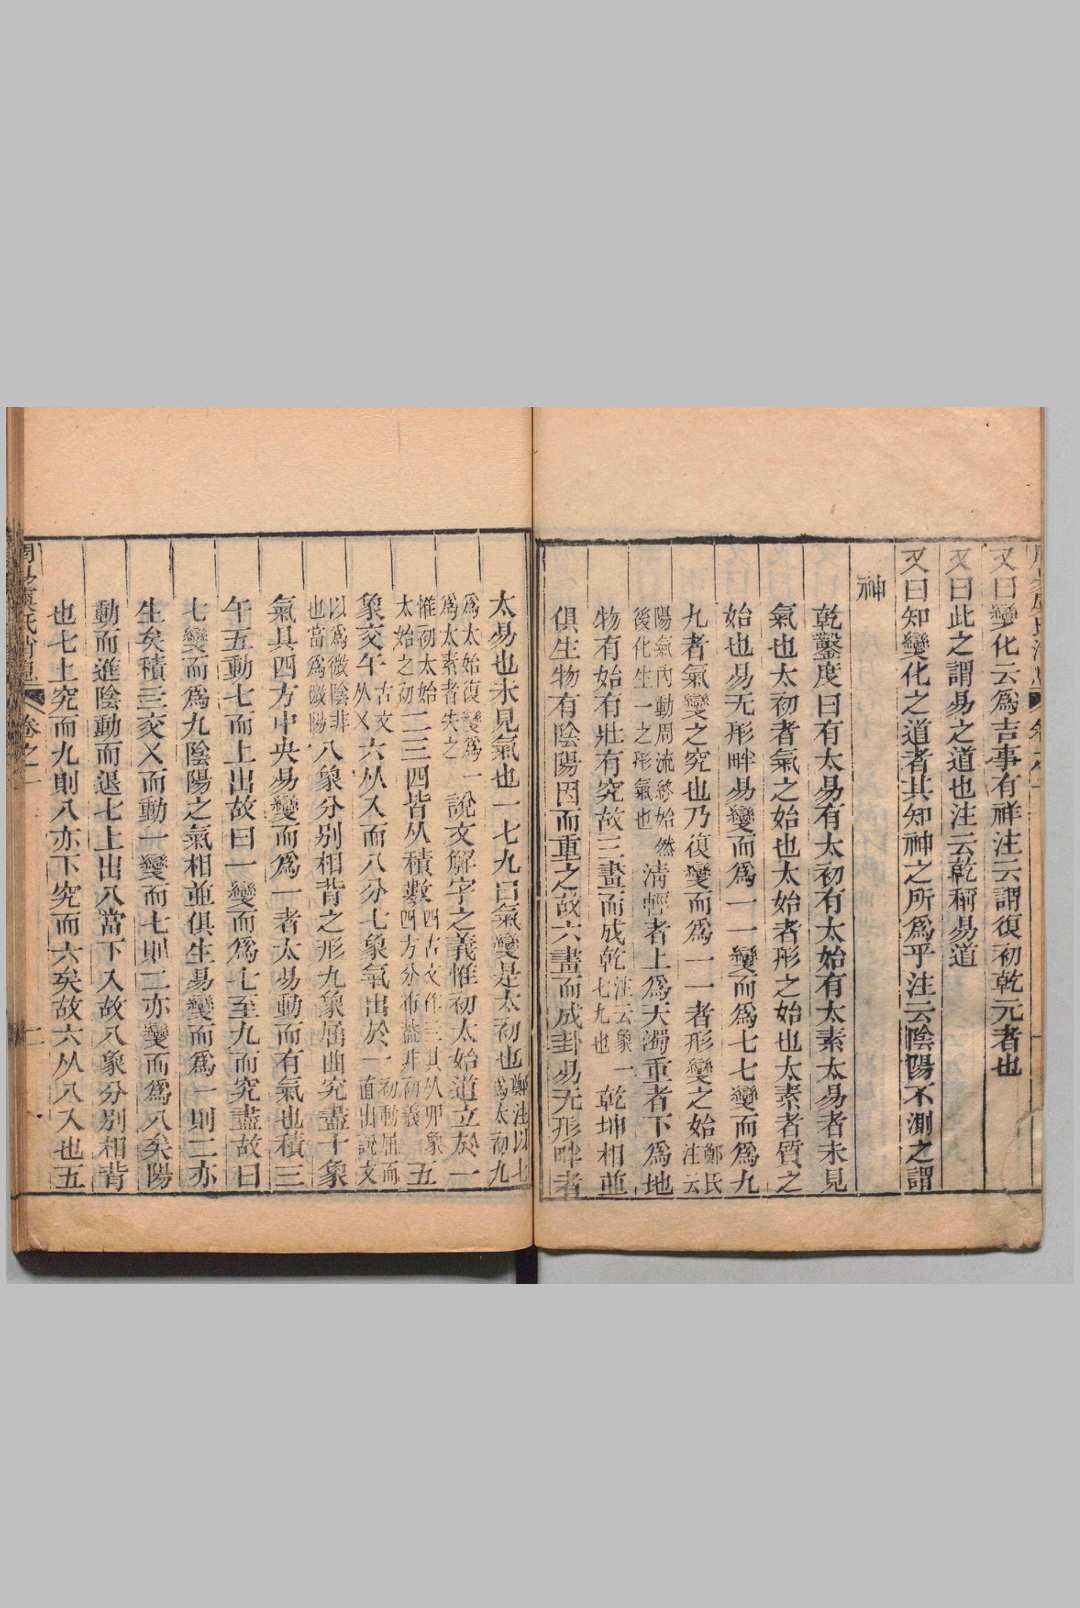 又曰變化云爲吉事有祥注云謂復初乾元者也
又曰此之謂易之道也注云乾稱易道
又曰知變化之道者其知神之所爲乎注云陰陽不測之謂
神
乾鑿度曰有太易有太初有太始有太素太易者未見
氣也太初者氣之始也太始者形之始也太素者質之
始也易无形畔易變而爲一一變而爲七七變而爲九
九者氣變之究也乃復變而爲一一者形變之始鄭氏注云
陽氣內動周流終始然後化生一之形氣也淸輕者上爲天濁重者下爲地
物有始有壯有究故三畫而成乾注云象一七九也乾坤相並
俱生物有陰陽因而重之故六畫而成卦易无形畔者
太易也未見氣也一七九曰氣變是太初也鄭注以七爲太初九
爲太始復變爲一爲太素者失之說文解字之義惟初太始道立於一
惟初太始太始之初二三四皆从積數四古文作亖其从丣象四方分布蓋非初義五
象交午古文从乂六从入而八分七象氣出於一初動屈而直出說文
以爲微陰非也當爲微陽八象分別相背之形九象屈曲究盡十象
氣具四方中央易變而爲一者太易動而有氣也積三
午五動七而上出故曰一變而爲七至九而究盡故曰
七變而爲九陰陽之氣相並俱生易變而爲一則二亦
生矣積三交乂而動一變而七則二亦變而爲八矣陽
動而進陰動而退七上出八當下入故八象分別相背
也七上究而九則八亦下究而六矣故六从八入也五
卷之一